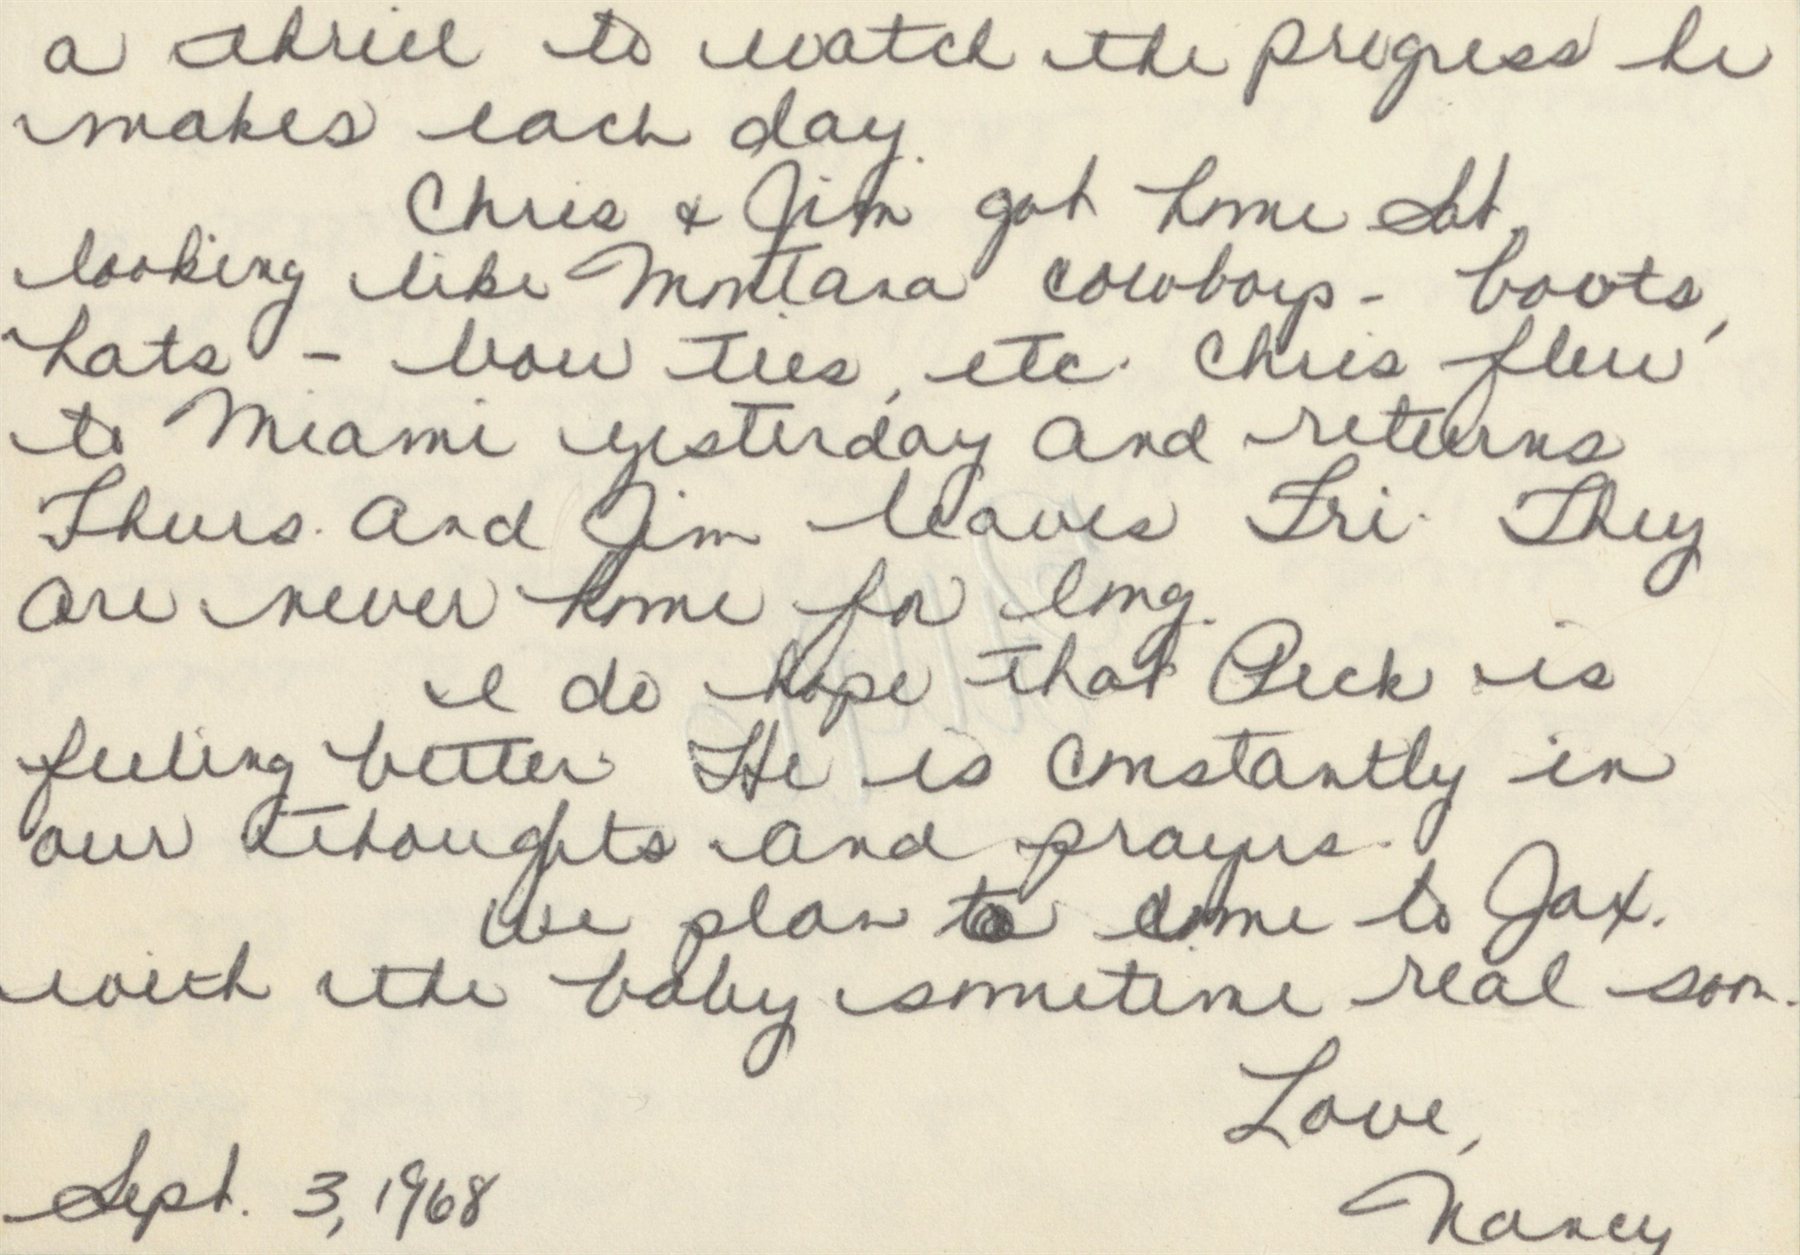 a thrill to watch the progress he
makes each day.
Chris & Jim got home Sat.
looking like Montana cowboys - boots,
hats - bow ties, etc. Chris flew
to Miami yesterday and returns
Thurs. and Jim leaves Fri. They
are never home for long.
I do hope that Peck is
feeling better. He is constantly in
our thoughts and prayers.
We plan to come to Jax.
with the baby sometime real soon.
Love,
Nancy
Sept. 3, 1968